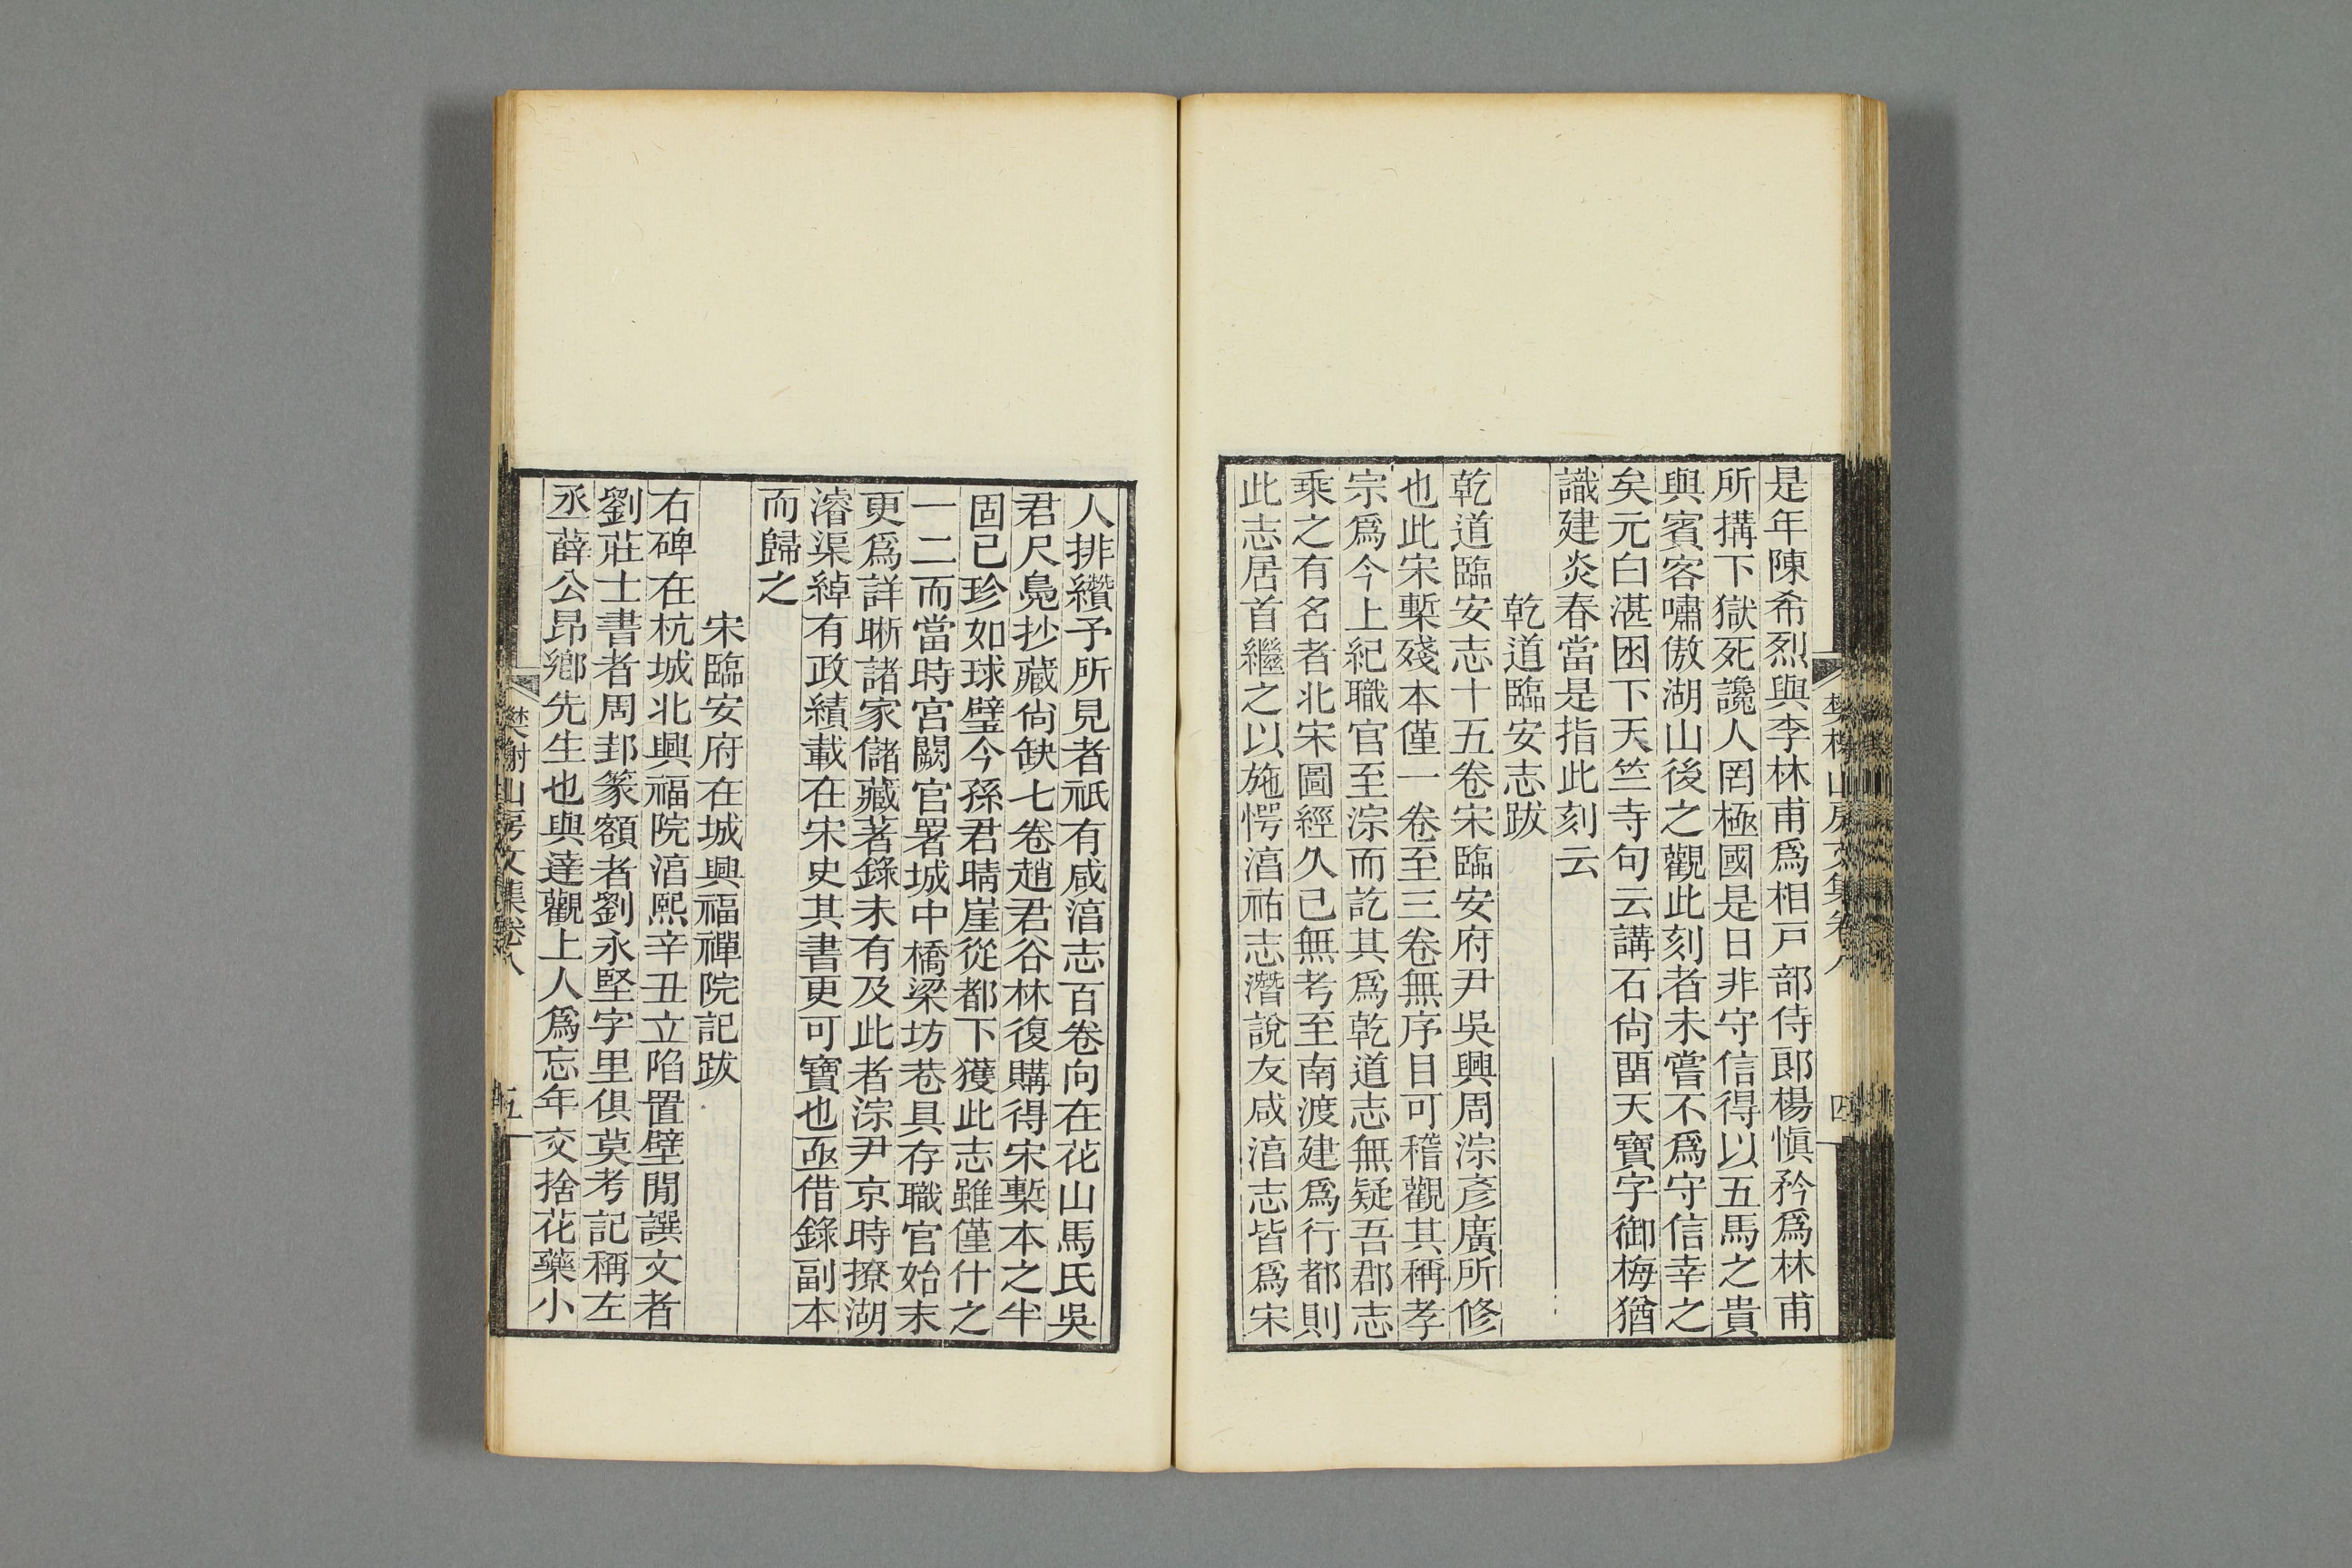 是年陳希烈與李林甫爲相戸部侍郎楊愼矜爲林甫
所搆下獄死讒人罔極國是日非守信得以五馬之貴
與賓客嘯傲湖山後之觀此刻者未嘗不爲守信幸之
矣元白湛囦下天竺寺句云講石尙畱天寶字御梅猶
識建炎春當是指此刻云
乾道臨安志跋
乾道臨安志十五卷宋臨安府尹吳興周淙彥廣所修
也此宋槧殘本僅一卷至三卷無序目可稽觀其稱孝
宗爲今上紀職官至淙而訖其爲乾道志無疑吾郡志
乘之有名者北宋圖經久已無考至南渡建爲行都則
此志居首繼之以施愕湻祐志潛說友咸湻志皆爲宋
人排纘予所見者祇有咸湻志百卷向在花山馬氏吳
君尺鳧抄藏尙缺七卷趙君谷林復購得宋槧本之半
固已珍如球璧今孫君晴崖從都下獲此志雖僅什之
一二而當時宮闕官署城中橋梁坊巷具存職官始末
更爲詳晰諸家儲藏著錄未有及此者淙尹京時撩湖
濬渠綽有政績載在宋史其書更可寶也亟借錄副本
而歸之
宋臨安府在城興福禪院記跋
右碑在杭城北興福院湻熙辛丑立陷置壁閒譔文者
劉莊士書者周邽篆額者劉永堅字里俱莫考記稱左
丞薛公昂鄉先生也與達觀上人爲忘年交捨花藥小
樊榭山房文集卷八
五